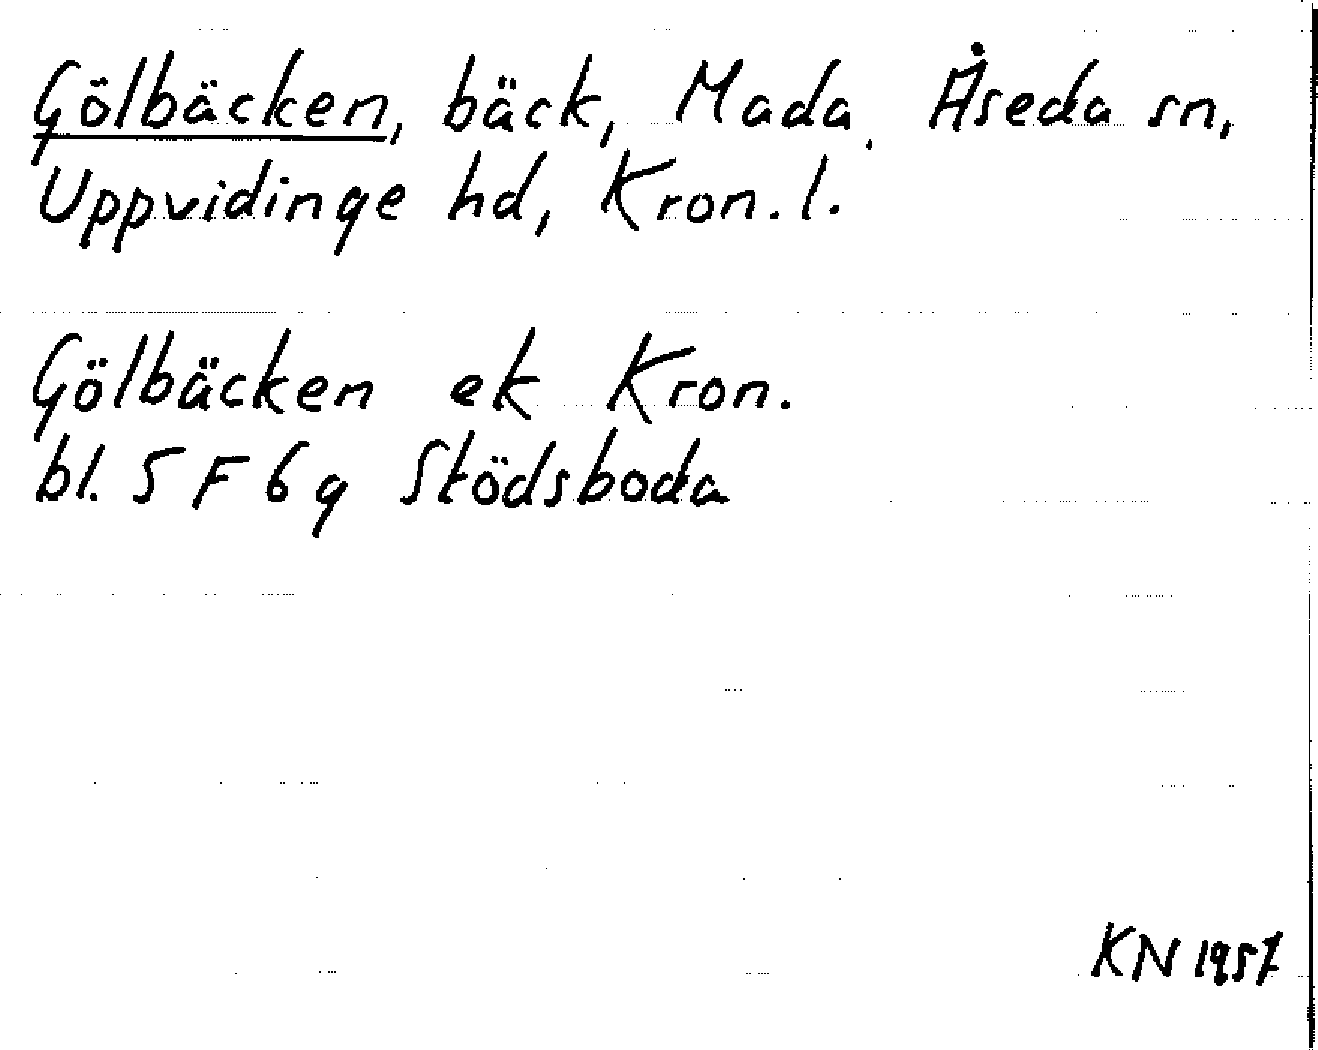 Gölbäcken, bäck, Mada, Åseda sn,
Uppvidinge hd, Kron. l.
Gölbäcken ek Kron.
bl. 5 F 6 g Stödsboda
KN 1957